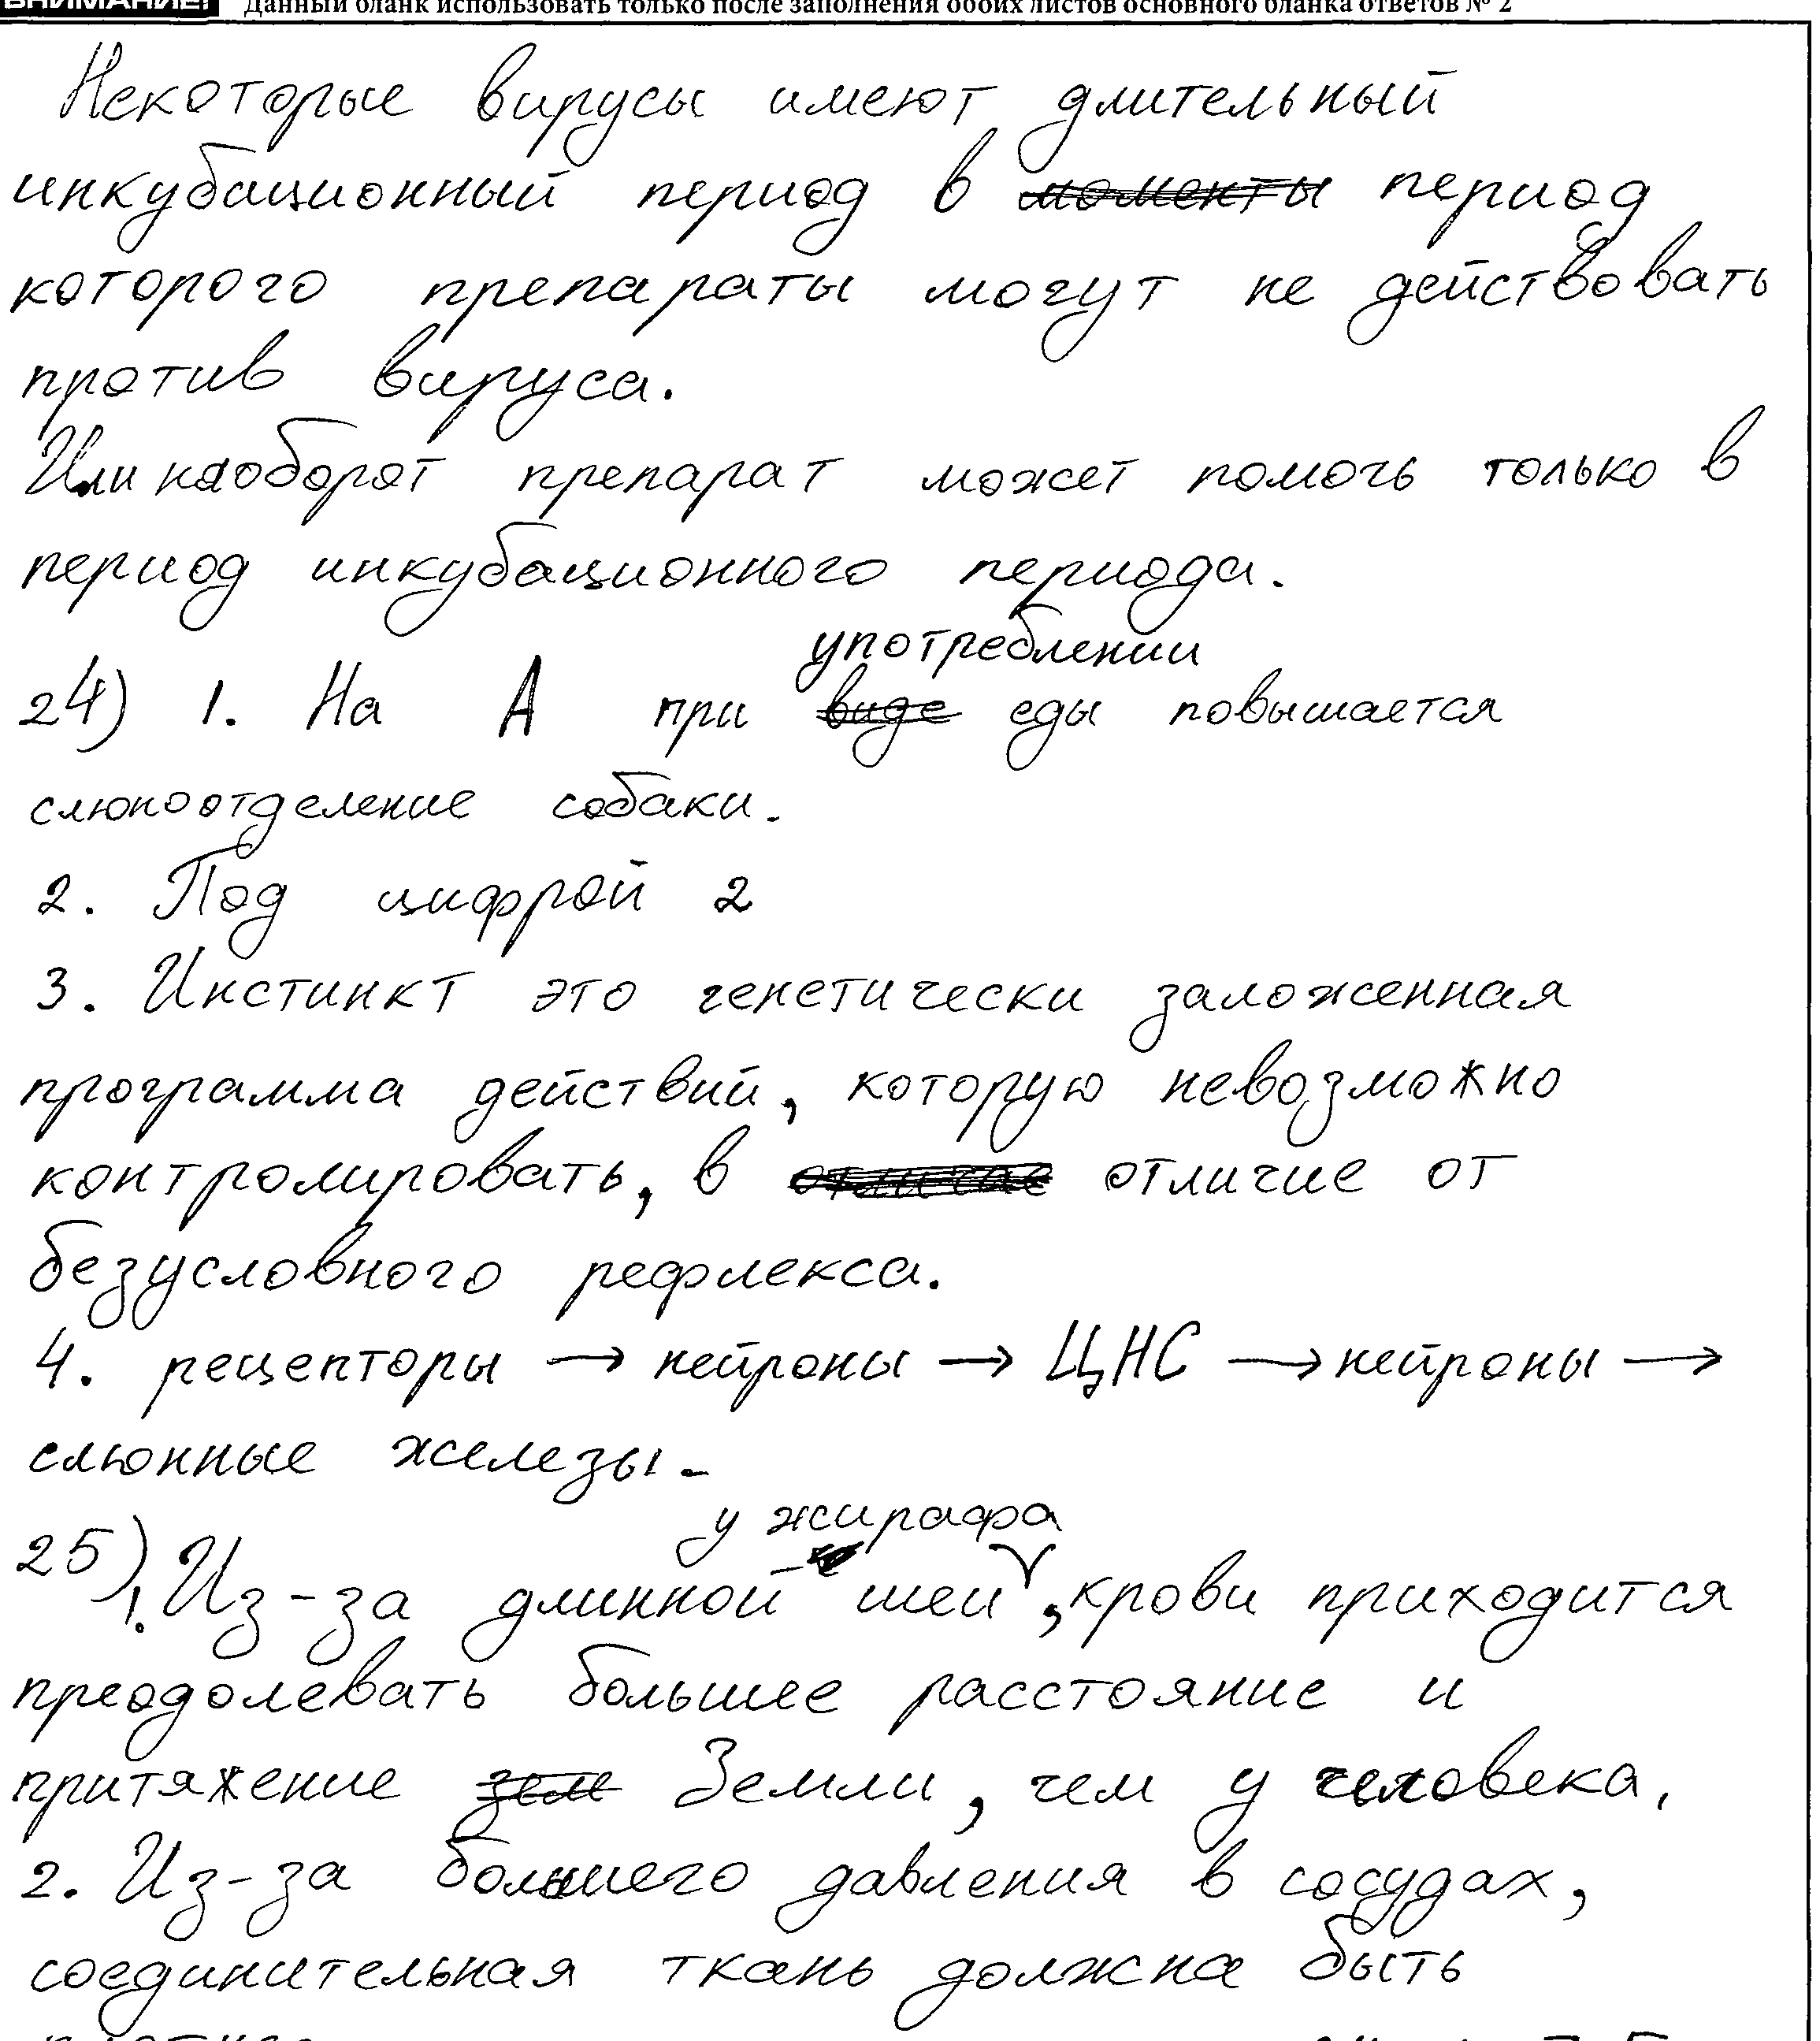 ВНИМАНИЕ! Данный бланк использовать только после заполнения обоих листов основного бланка ответов № 2
Некоторые вирусы имеют длительный
инкубационный период в моменты период
которого препараты могут не действовать
против вируса.
Или наоборот препарат может помочь только в
период инкубационного периода.
употреблении
24) 1. На А при виде еды повышается
слюноотделение собаки.
2. Под цифрой 2
3. Инстинкт это генетически заложенная
программа действий, которую невозможно
контролировать, в отличае отличие от
безусловного рефлекса.
4. рецепторы → нейроны → ЦНС → нейроны →
слюнные железы.
у жирафа
25) 1. Из-за длинной шеи, крови приходится
преодолевать большее расстояние и
притяжение зем Земли, чем у человека.
2. Из-за большего давления в сосудах,
соединительная ткань должна быть